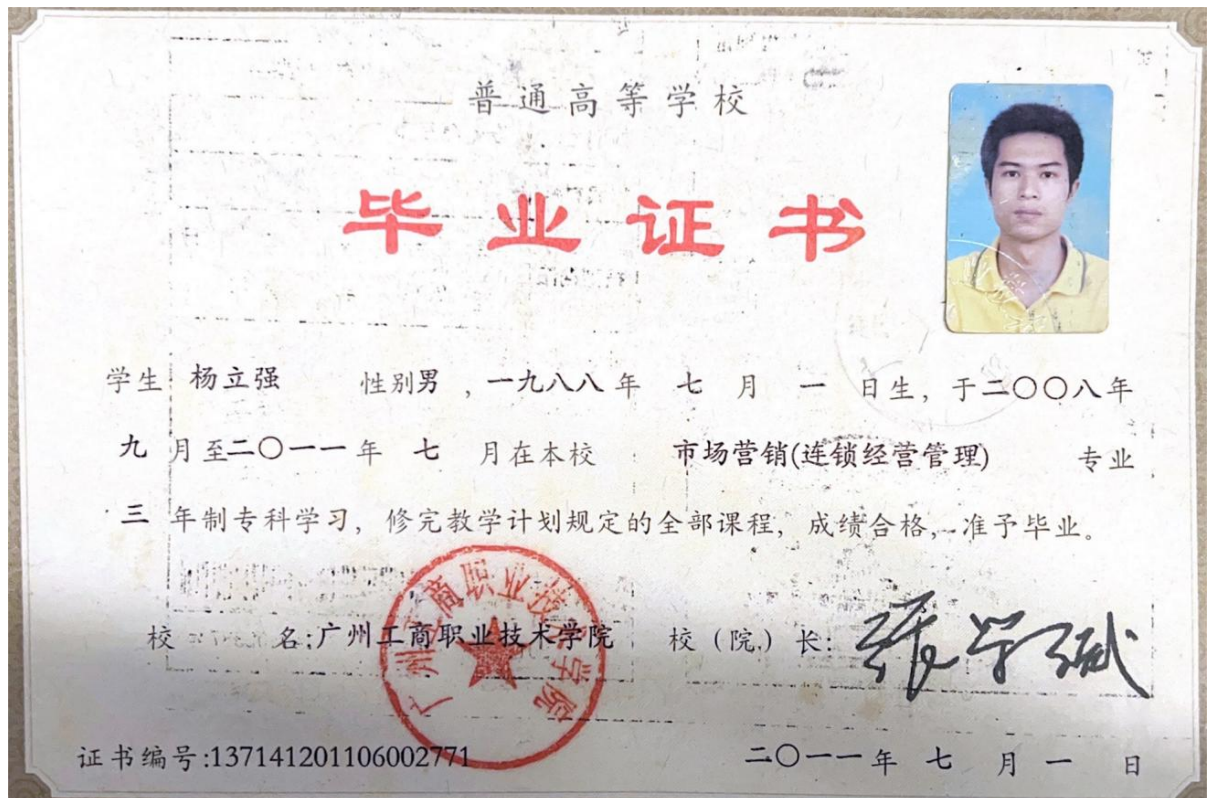 普通高等学校
毕业证书
学生 杨立强 性别男，一九八八年 七 月 一 日生，于二〇〇八年
九 月至二〇一一年 七 月在本校 市场营销(连锁经营管理) 专业
三 年制专科学习，修完教学计划规定的全部课程，成绩合格，准予毕业。
广州工商职业技术学院
校 名:广州工商职业技术学院 校（院）长:
证书编号:137141201106002771 二〇一一年 七 月 一 日